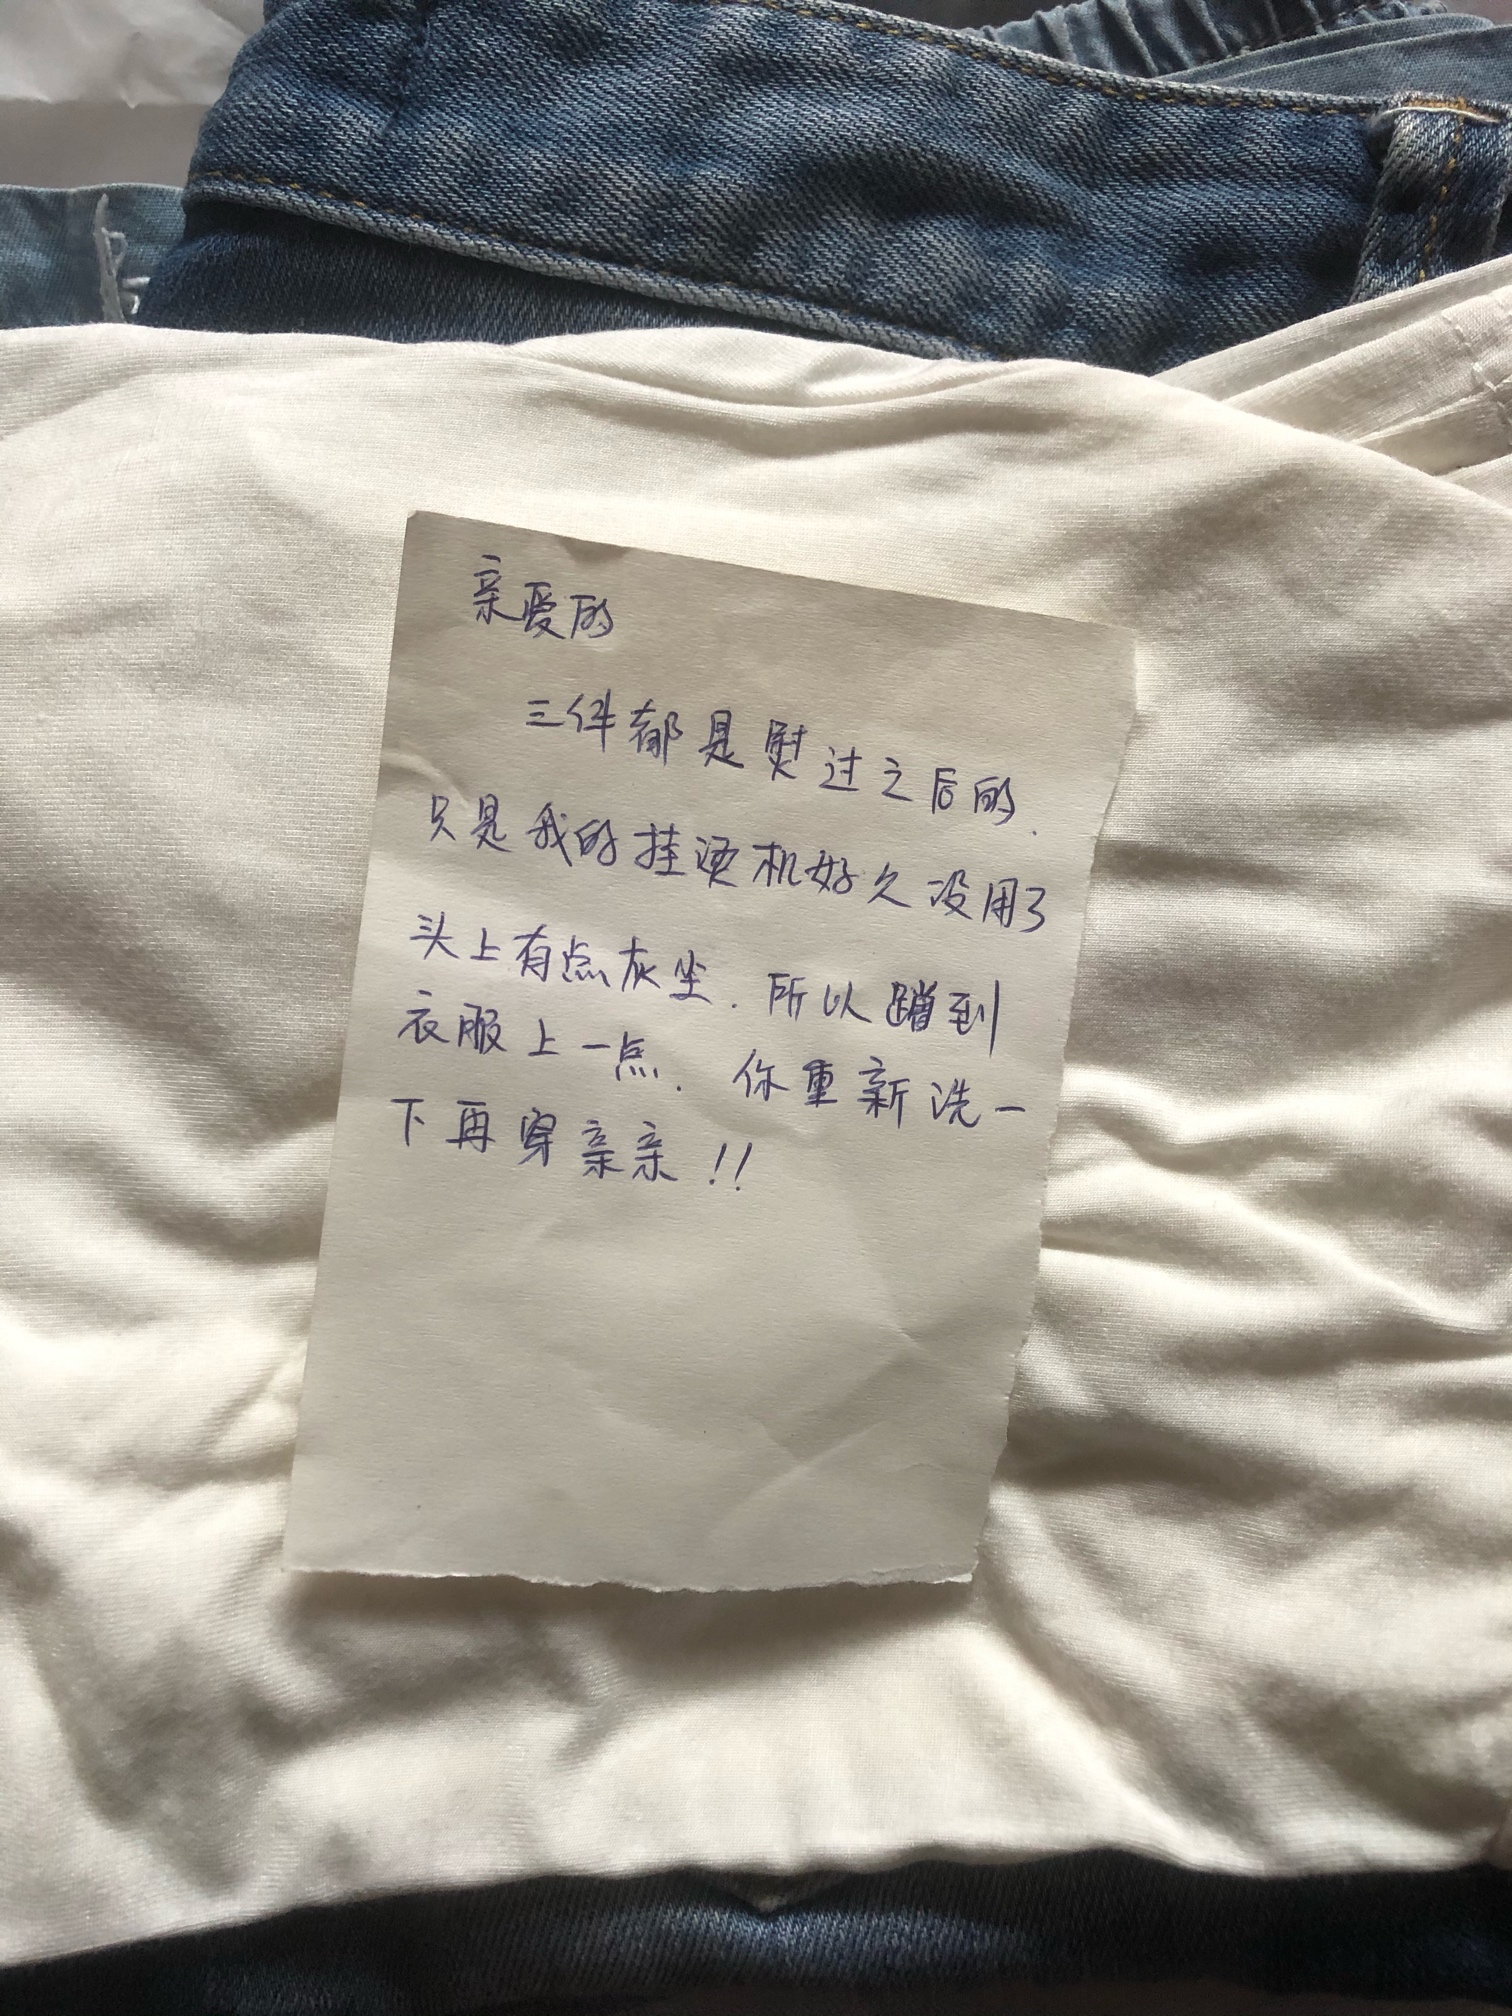 亲爱的
三件都是熨过之后的.
只是我的挂烫机好久没用了
头上有点灰尘.所以蹭到
衣服上一点.你重新洗一
下再穿亲亲!!